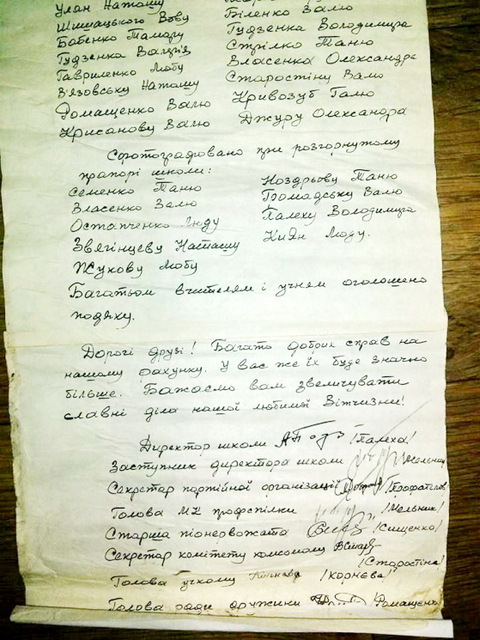 Улан Наташу
Шишацького Вову
Біленко Валю
Бабенко Тамару
Гудзенка Володимира
Гудзенка Валерія
Стрілко Таню
Гавриленко Любу
Власенка Олександра
В'язовську Наташу
Старостіну Валю
Домащенко Валю
Кривозуб Галю
Крисанову Валю
Джуру Олександра
Сфотографовано при розгорнутому
прапорі школи:
Семенко Таню
Ноздрьову Таню
Власенко Валю
Громадську Валю
Остапченко Люду
Палеху Володимира
Звягінцеву Наташу
Киян Люду.
Жукову Любу
Багатьом вчителям і учням оголошено
подяку.
Дорогі друзі! Багато добрих справ на
нашому рахунку. У вас же їх буде значно
більше. Бажаємо вам звеличувати
славні діла нашої любимої Вітчизни!
Директор школи /Палеха/
Заступник директора школи /Мельник
Секретар партійної організації
Голова МК профспілки /Мельник/
Старша піонервожата /Сищенко/
Секретар комітету комсомолу
/Старостіна/
Голова учкому /Корнєва/
Голова ради дружини /Ромащенко